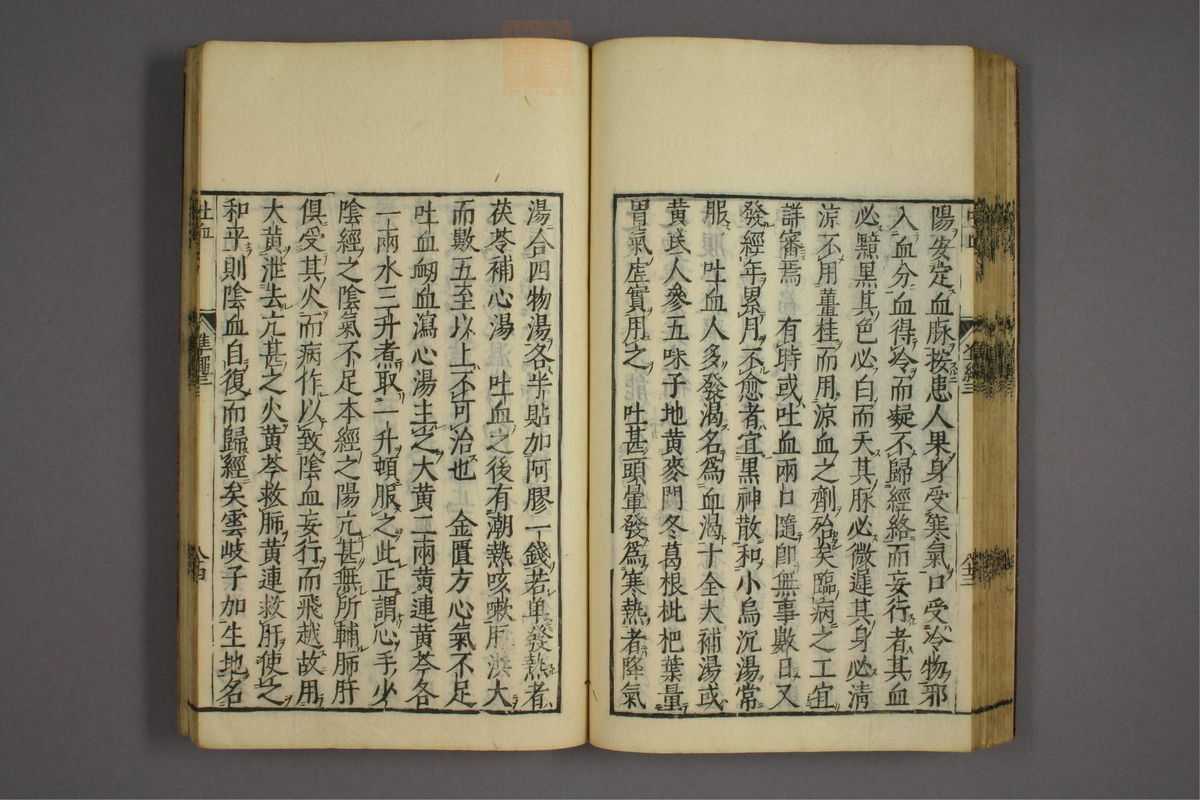 陽安定血脉按患人果身受寒氣口受冷物邪
入血分血得冷而凝不歸經絡而妄行者其血
必黯黑其色必白而夭其脉必微遲其身必清
涼不用薑桂而用涼血之劑殆矣臨病之工宜
詳審焉 有時或吐血兩口隨即無事數日又
發經年累月不愈者宜黑神散和小烏沉湯常
服 吐血人多發渴名爲血渴十全大補湯或
黄芪人參五味子地黄麥門冬葛根枇杷葉量
胃氣虚實用之 吐甚頭暈發爲寒熱者降氣
湯合四物湯各半貼加阿膠一錢若单發熱者
茯苓補心湯 吐血之後有潮熱咳嗽脉洪大
而數五至以上不可治也 金匱方心氣不足
吐血衂血瀉心湯主之大黄二兩黄連黄芩各
一兩水三升煮取一升頓服之此正謂心手少
陰經之陰氣不足本經之陽亢甚無所輔肺肝
俱受其火而病作以致陰血妄行而飛越故用
大黄泄去亢甚之火黄芩救肺黄連救肝使之
和平則陰血自復而歸經矣雲岐子加生地名
吐血
準繩三
八十四